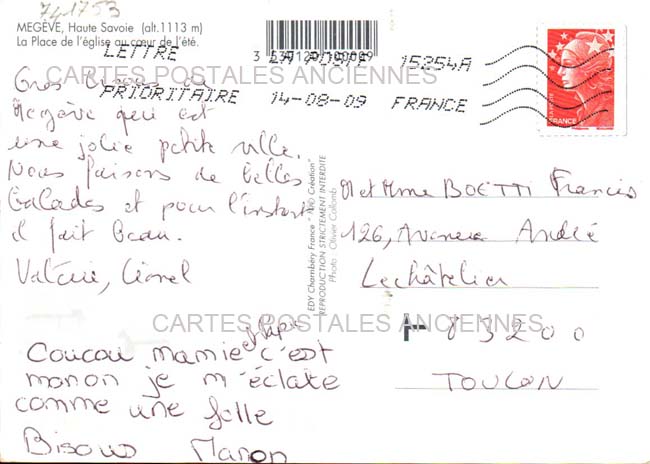 741753
MEGÈVE, Haute Savoie (alt.1113 m)
La Place de l'église au cœur de l'été.
LETTRE
PRIORITAIRE
LA POSTE
14-08-09
15254A
FRANCE
CARTES POSTALES ANCIENNES
Gros
Megève qui est
une jolie petite ville.
Nous faisons de belles
balades et pour l'instant
il fait beau.
Valérie, Lionel
Coucou mamie et Papi c'est
manon je m'éclate
comme une folle
Bisous Manon
EDY Chambéry France
Création"
REPRODUCTION STRICTEMENT INTERDITE
Photo : Olivier Colomb
FRANCE
M et Mme BOETTI Francis
126, Avenue André
Lechâtelier
83200
TOULON
CARTES POSTALES ANCIENNES